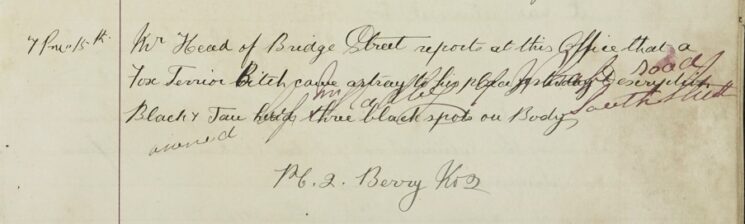 7 P.m. 15th. Mr Head of Bridge Street reports at this Office that a
Fox Terrior Bitch came astray to his place yesterday Description
Black & Tan head three black spots on Body
owned by South Street
P.C. 2. Berry